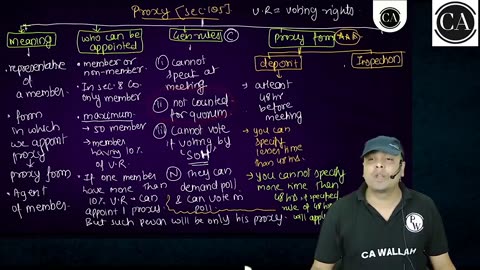 Proxy [sec-105]
V.R = voting rights
meaning
• representative
of
a member.
• form
in which
we appoint
proxy
proxy form
• Agent
of member.
who can be
appointed
• member or
non-member
• In sec 8 co.
only member
• maximum
→ 50 member
→ members
having 10%
of V.R
• If one member
have more than
10% V.R → can
appoint 1 proxy.
But such person will be only his proxy.
Gen-rules C
(i) cannot
speak at
meeting
(ii) not counted
for quorum
(iii) cannot vote
if voting by
SOH
(iv) They can
demand poll
& can vote in
poll.
proxy form
deposit
→ atleast
48 hr
before
meeting
→ you can
specify
lesser time
than 48 hrs.
→ you cannot specify
more time than
48 hrs if specified
rule of 48 hrs
will apply
Inspection
CA
CA
PW
CA WALLAH